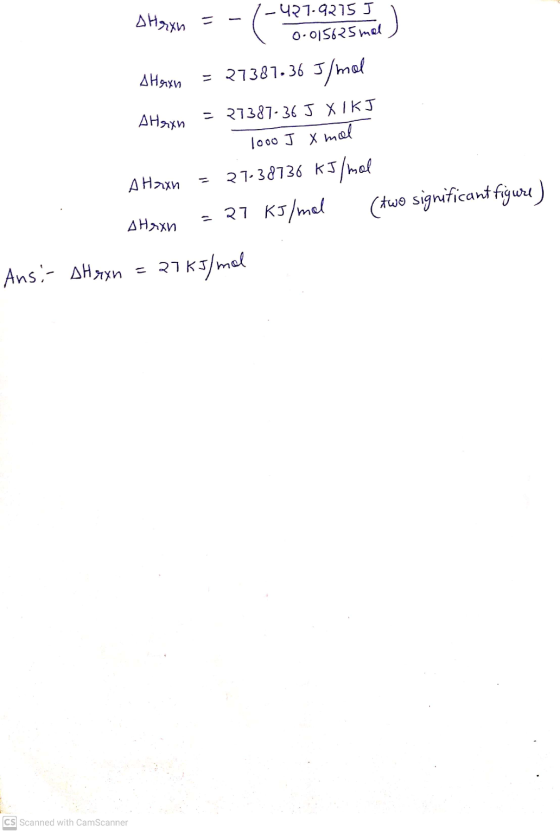 ΔHrxn = - (-427.9275 J / 0.015625 mol)
ΔHrxn = 27387.36 J/mol
ΔHrxn = 27387.36 J X 1KJ / 1000 J X mol
ΔHrxn = 27.38736 KJ/mol
ΔHrxn = 27 KJ/mol (two significant figure)
Ans:- ΔHrxn = 27 KJ/mol
CS Scanned with CamScanner